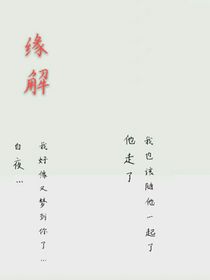 缘解
他走了
我也该随他一起了
白夜…
我好像又梦到你了…